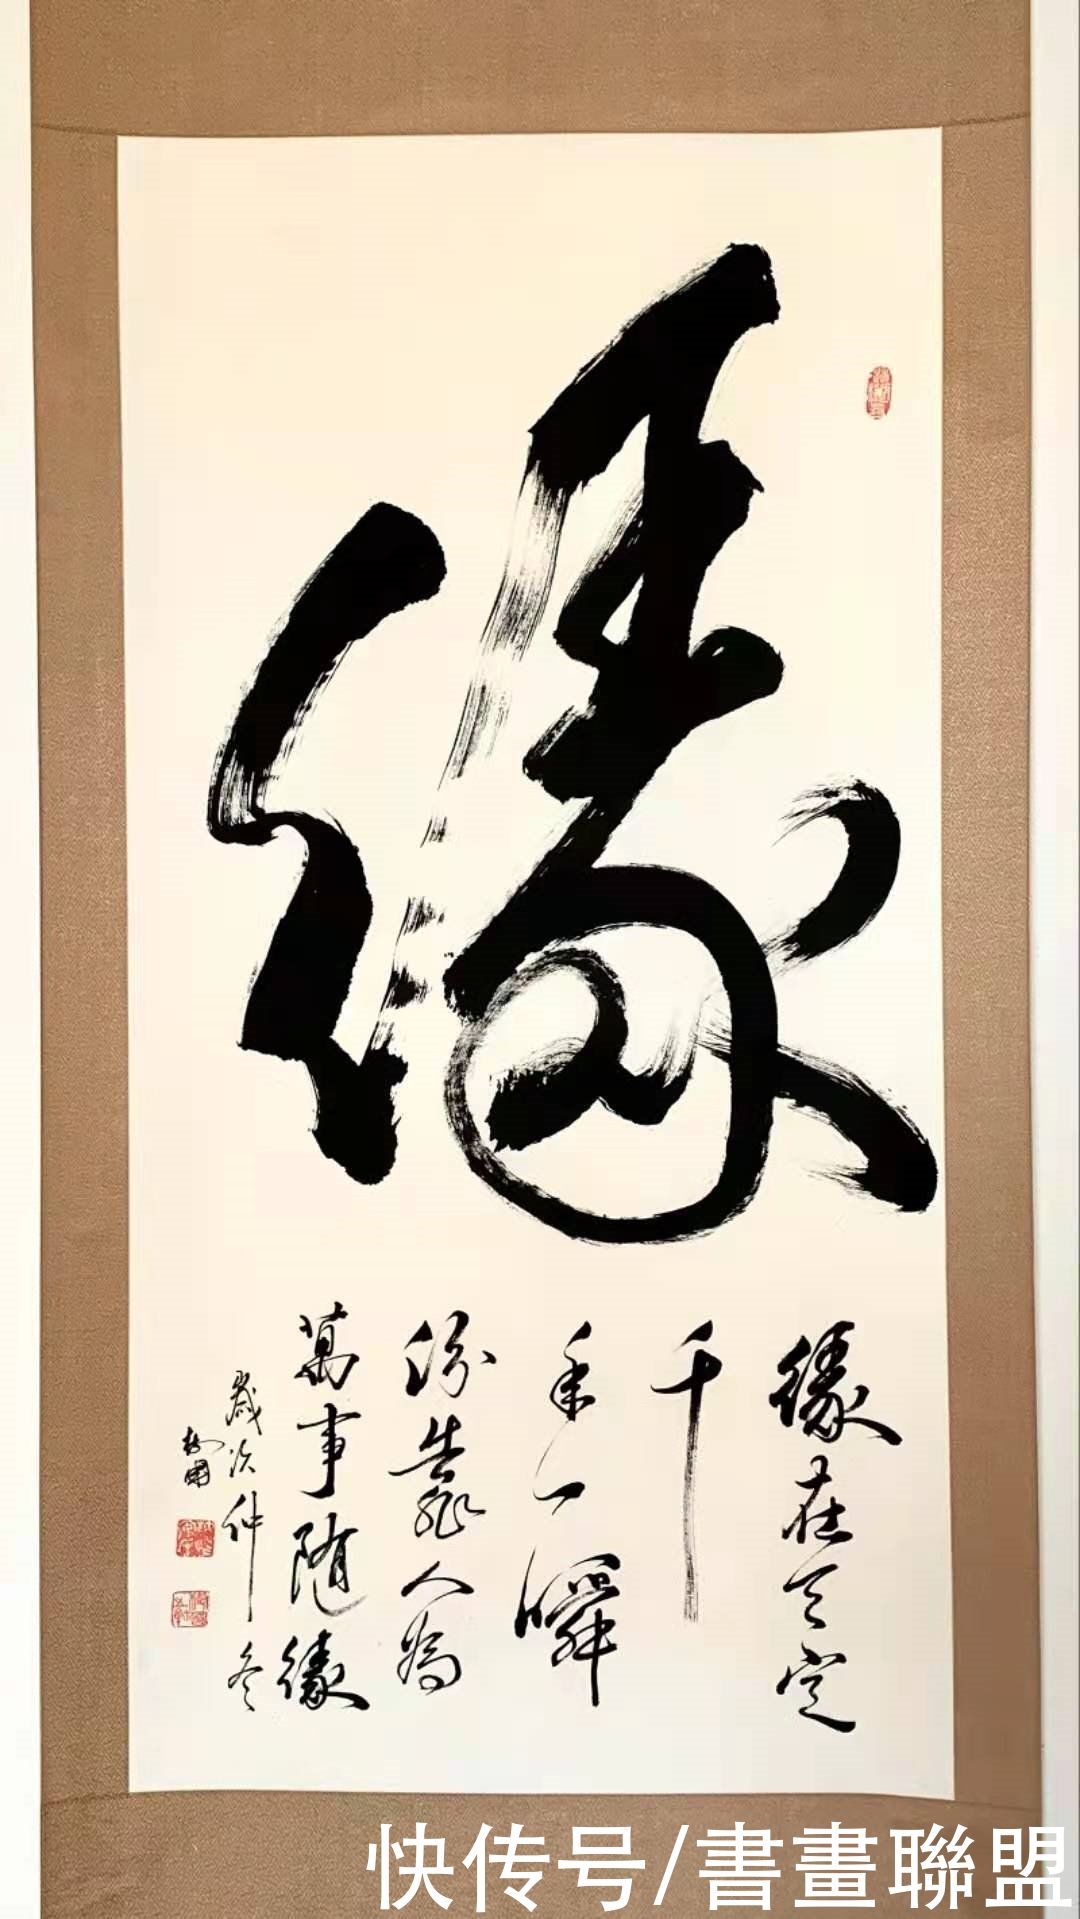 緣
緣在天定
千
年一瞬
份靠人為
萬事随緣
歲次仲冬
快传号/書畫聯盟